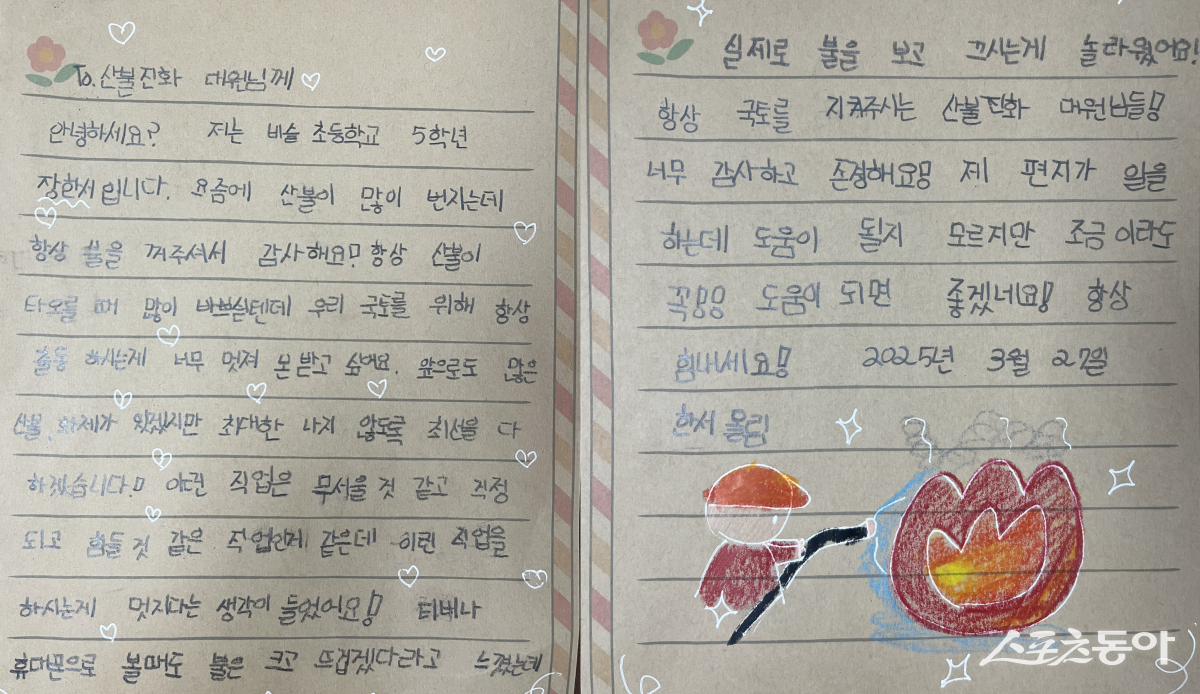 To. 산불진화 대원님께
안녕하세요? 저는 비슬 초등학교 5학년
장한서입니다. 요즘에 산불이 많이 번지는데
항상 불을 꺼주셔서 감사해요! 항상 산불이
타오를 때 많이 바쁘실텐데 우리 국토를 위해 항상
출동 하시는게 너무 멋져 본받고 싶어요. 앞으로도 많은
산불, 화제가 있겠지만 최대한 나지 않도록 최선을 다
하겠습니다.! 이런 직업은 무서울 것 같고 걱정
되고 힘들 것 같은 직업인게 같은데 이런 직업을
하시는게 멋지다는 생각이 들었어요!! 티비나
휴대폰으로 볼때도 불은 크고 뜨겁겠다라고 느꼈는데
실제로 불을 보고 끄시는게 놀라웠어요!
항상 국토를 지켜주시는 산불진화 대원님들!!
너무 감사하고 존경해요!! 제 편지가 일을
하는데 도움이 될지 모르지만 조금이라도
꼭!!! 도움이 되면 좋겠네요!! 항상
힘내세요!! 2025년 3월 27일
한서 올림
스포츠동아